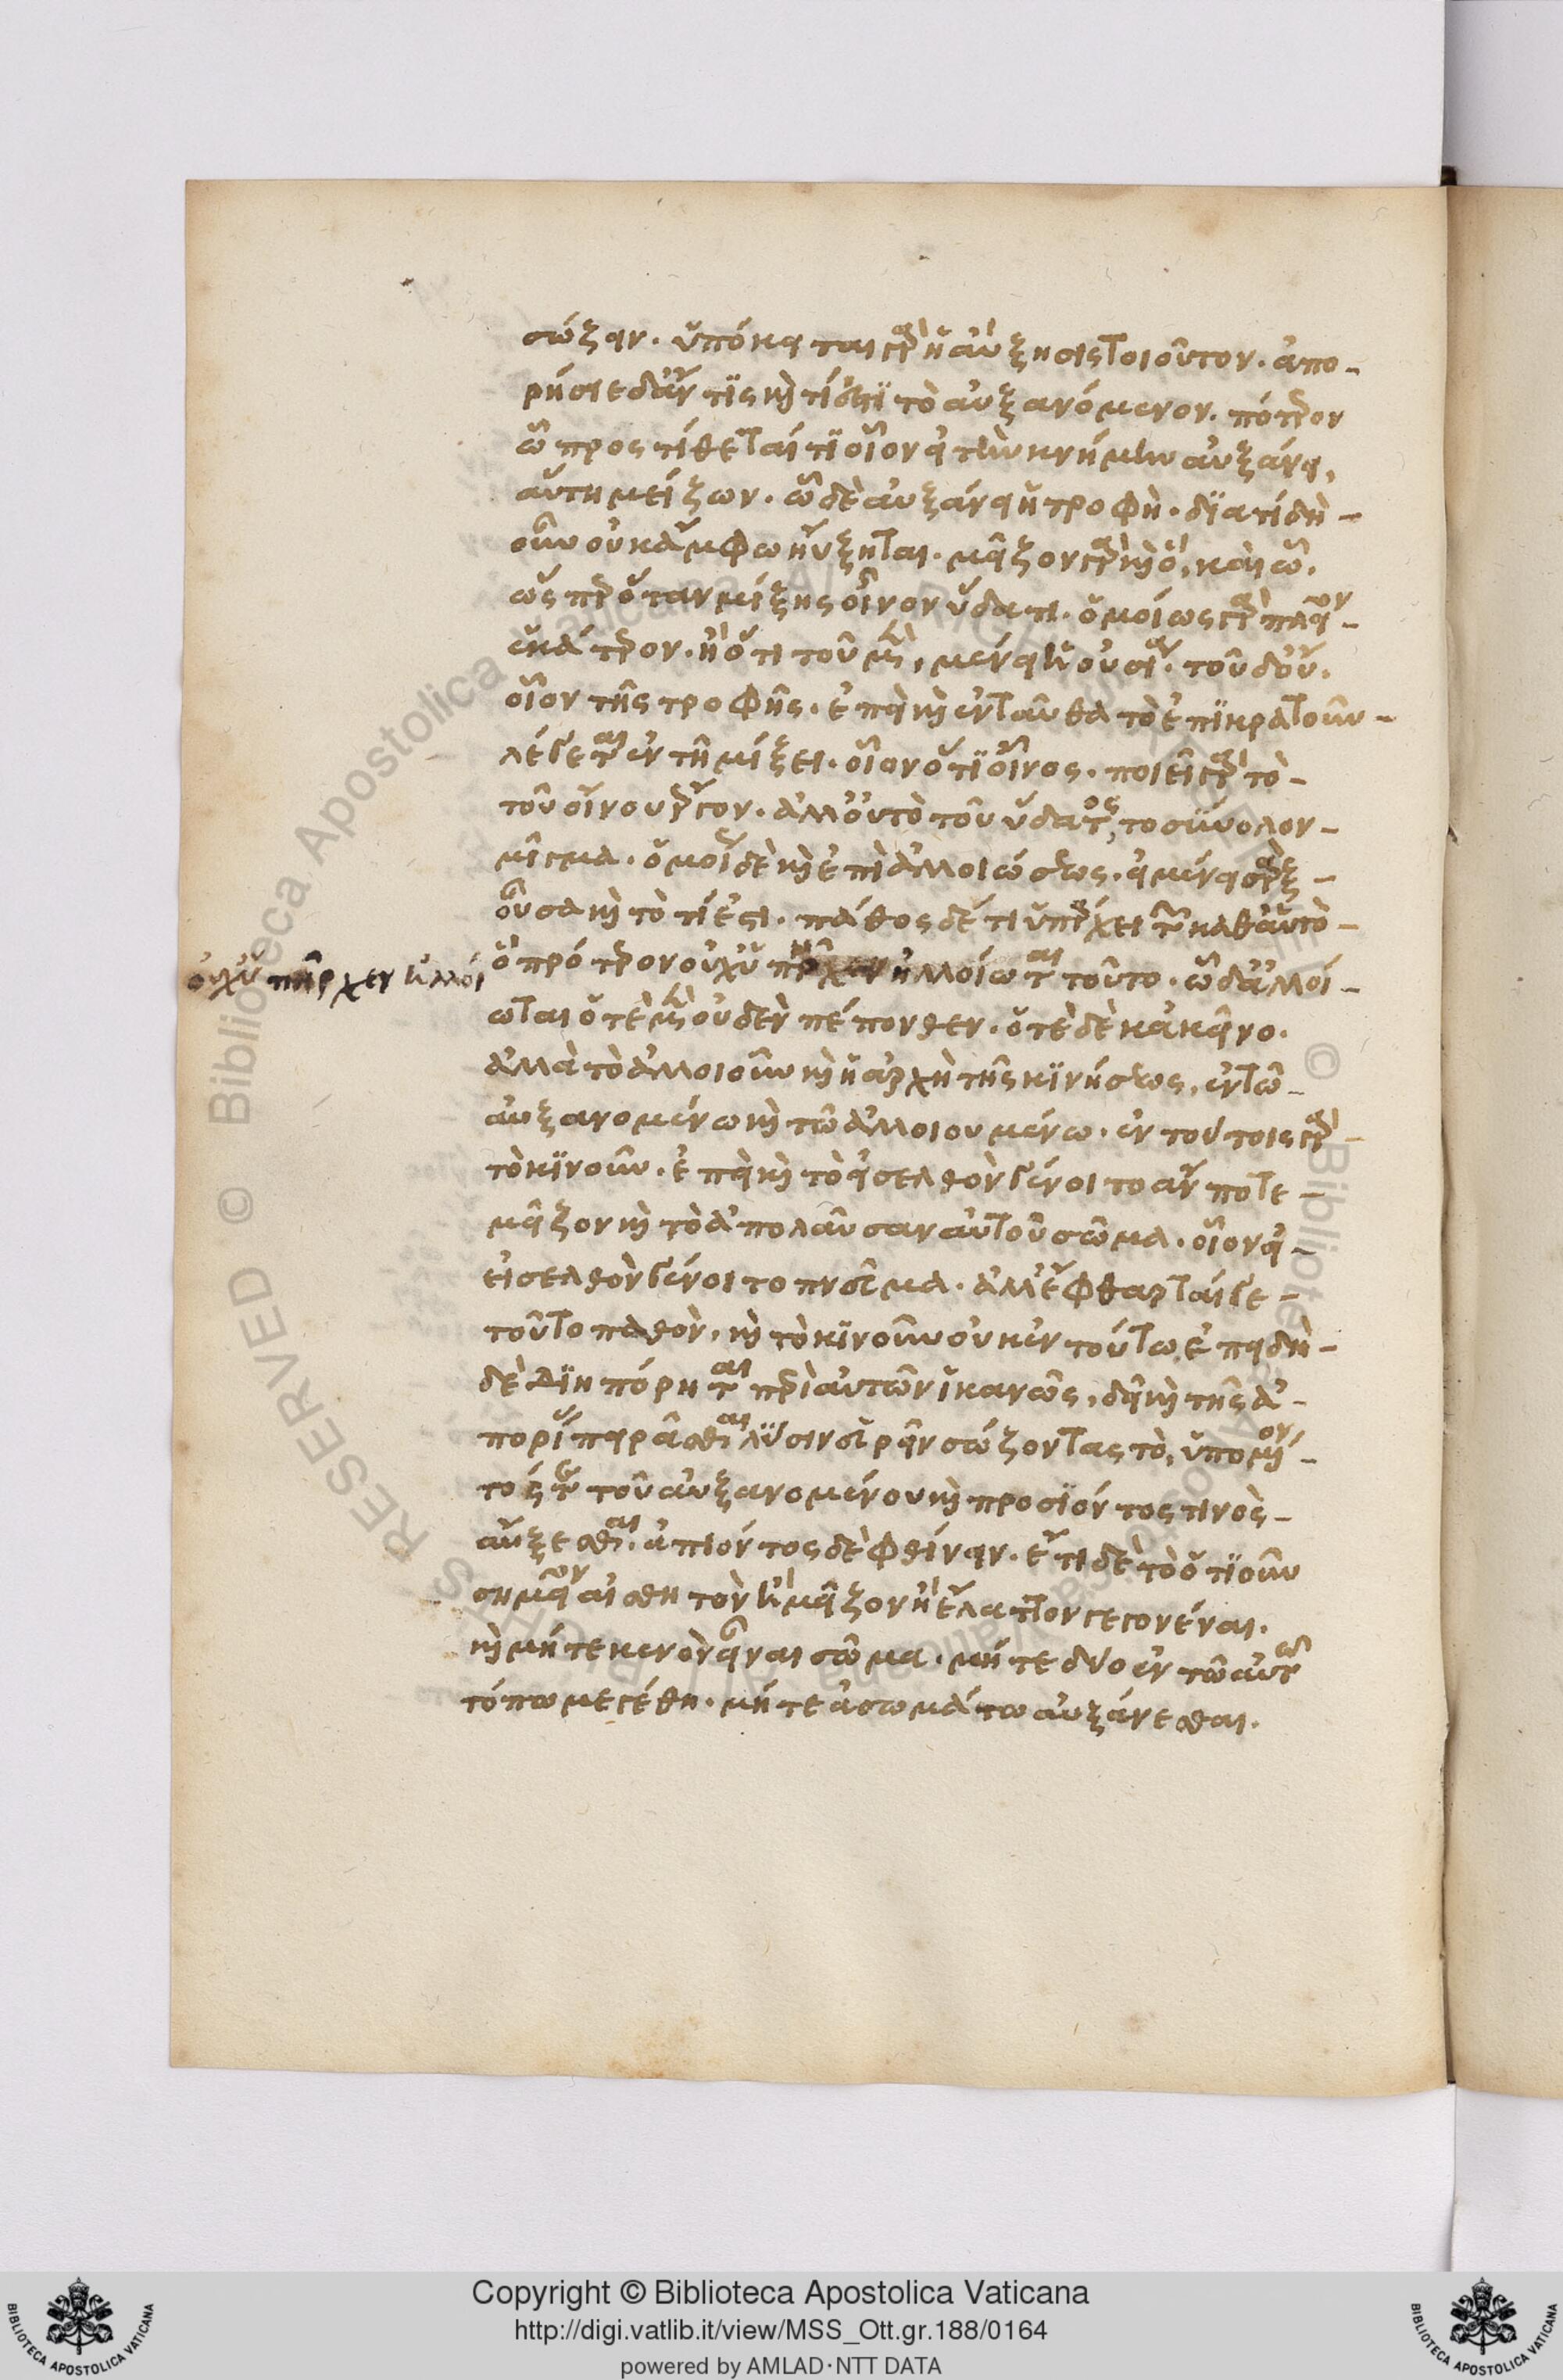 σώζειν. ὑπόκειται γὰρ ἡ αὔξησις τοιοῦτον. ἀπο-
ρήσειε δἄν τϊς καὶ τί ἐστϊ τὸ αὐξανόμενον. πότερον
ὧ προστίθεταί τϊ οἷον εἰ τὴν κνήμην αὐξάνει,
αὕτη μείζων. ὧ δὲ αὐξάνει ἡ τροφὴ. δϊατί δὴ-
οὖν οὐκ ἄμφω ηὔξηται. μεῖζον γὰρ καὶ ὃ, καὶ ὧ.
ὥσπερ ὅταν μίξης οἶνον ὕδατι. ὁμοίως γὰρ πλεῖον-
ἑκάτερον. ἢ ὅτι τοῦ μὲν, μένει ἡ οὐσία. τοῦ δοὔ.
οἷον τῆς τροφῆς. ἐπεὶ καὶ ἐνταῦθα τὸ ἐπϊκρατοῦν-
λέγεται ἐν τῆ μίξει. οἷον ὅτϊ οἶνος. ποιεῖ γὰρ τὸ-
τοῦ οἴνου ἔργον. ἀλλοὐ τὸ τοῦ ὕδατος, το σύνολον-
μῖγμα. ὁμοίως δὲ καὶ ἐπὶ ἀλλοιώσεως. εἰ μένει σὰρξ-
οὖσα καὶ τὸ τί ἐστι. πάθος δέ τι ὑπάρχει τῶν καθαὑτὸ-
ὃ πρότερον οὐχ ὑπῆρχεν ἠλλοίωται τοῦτο. ὧ δἀλλοί-
ωται ὁτὲ μὲν οὐδὲν πέπονθεν. ὁτὲ δὲ κἀκεῖνο.
ἀλλὰ τὸ ἀλλοιοῦν καὶ ἡ ἀρχὴ τῆς κϊνήσεως, ἐν τῶ-
αὐξανομένω καὶ τῶ ἀλλοιουμένω. ἐν τούτοις γὰρ-
τὸ κϊνοῦν. ἐπεὶ καὶ τὸ εἰσελθὸν γένοιτο ἄν ποτε-
μεῖζον καὶ τὸ ἀπολαῦσαν αὐτοῦ σῶμα. οἷον εἰ-
εἰσελθὸν γένοιτο πνεῦμα. ἀλλἔφθαρταί γε-
τοῦτο παθὸν, καὶ τὸ κϊνοῦν οὐκ ἐν τούτω. ἐπειδὴ-
δὲ διηπόρηται περὶ αὐτῶν ἱκανῶς, δεῖ καὶ τῆς ἀ-
πορίας πειρᾶσθαι λύσιν εὑρεῖν σώζοντας τὸ, ὑπομένον-
τός τε τοῦ αὐξανομένου καὶ προσϊόντος τινὸς-
αὔξεσθαι. ἀπιόντος δὲ φθίνειν. ἔτι δὲ τὸ ὁτϊοῦν
σημεῖον αἰσθητὸν ἢ μεῖζον ἢ ἔλαττον γεγονέναι.
καὶ μήτε κενὸν εἶναι σῶμα. μήτε δύο ἐν τῶ αὐτῶ
τόπω μεγέθη. μήτε ἀσωμάτω αὐξάνεσθαι.
οὐχ ὑπῆρχεν ἠλλοί
© Biblioteca Apostolica Vaticana
RESERVED
Copyright © Biblioteca Apostolica Vaticana
http://digi.vatlib.it/view/MSS_Ott.gr.188/0164
powered by AMLAD·NTT DATA
BIBLIOTECA APOSTOLICA VATICANA
BIBLIOTECA APOSTOLICA VATICANA